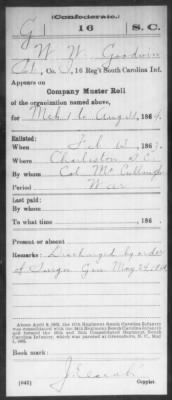 (Confederate.)
G 16 S.C.
W W Goodwin
Co. 16 Reg't South Carolina Inf.
Appears on
Company Muster Roll
of the organization named above,
for Mch 1 to Aug 31, 1864.
Enlisted:
When Feb 186 .
Where Charleston S.C.
By whom Col McCullough
Period War
Last paid:
By whom
To what time , 186 .
Present or absent
Remarks: Discharged by order
of Surgn Gen May 24, 1864
About April 9, 1865, the 16th Regiment South Carolina Infantry
was consolidated with the 24th Regiment South Carolina Infantry
and formed the 16th and 24th Consolidated Regiment South
Carolina Infantry, which was paroled at Greensboro, N. C., May
1, 1865.
Book mark:
(642) Copyist.